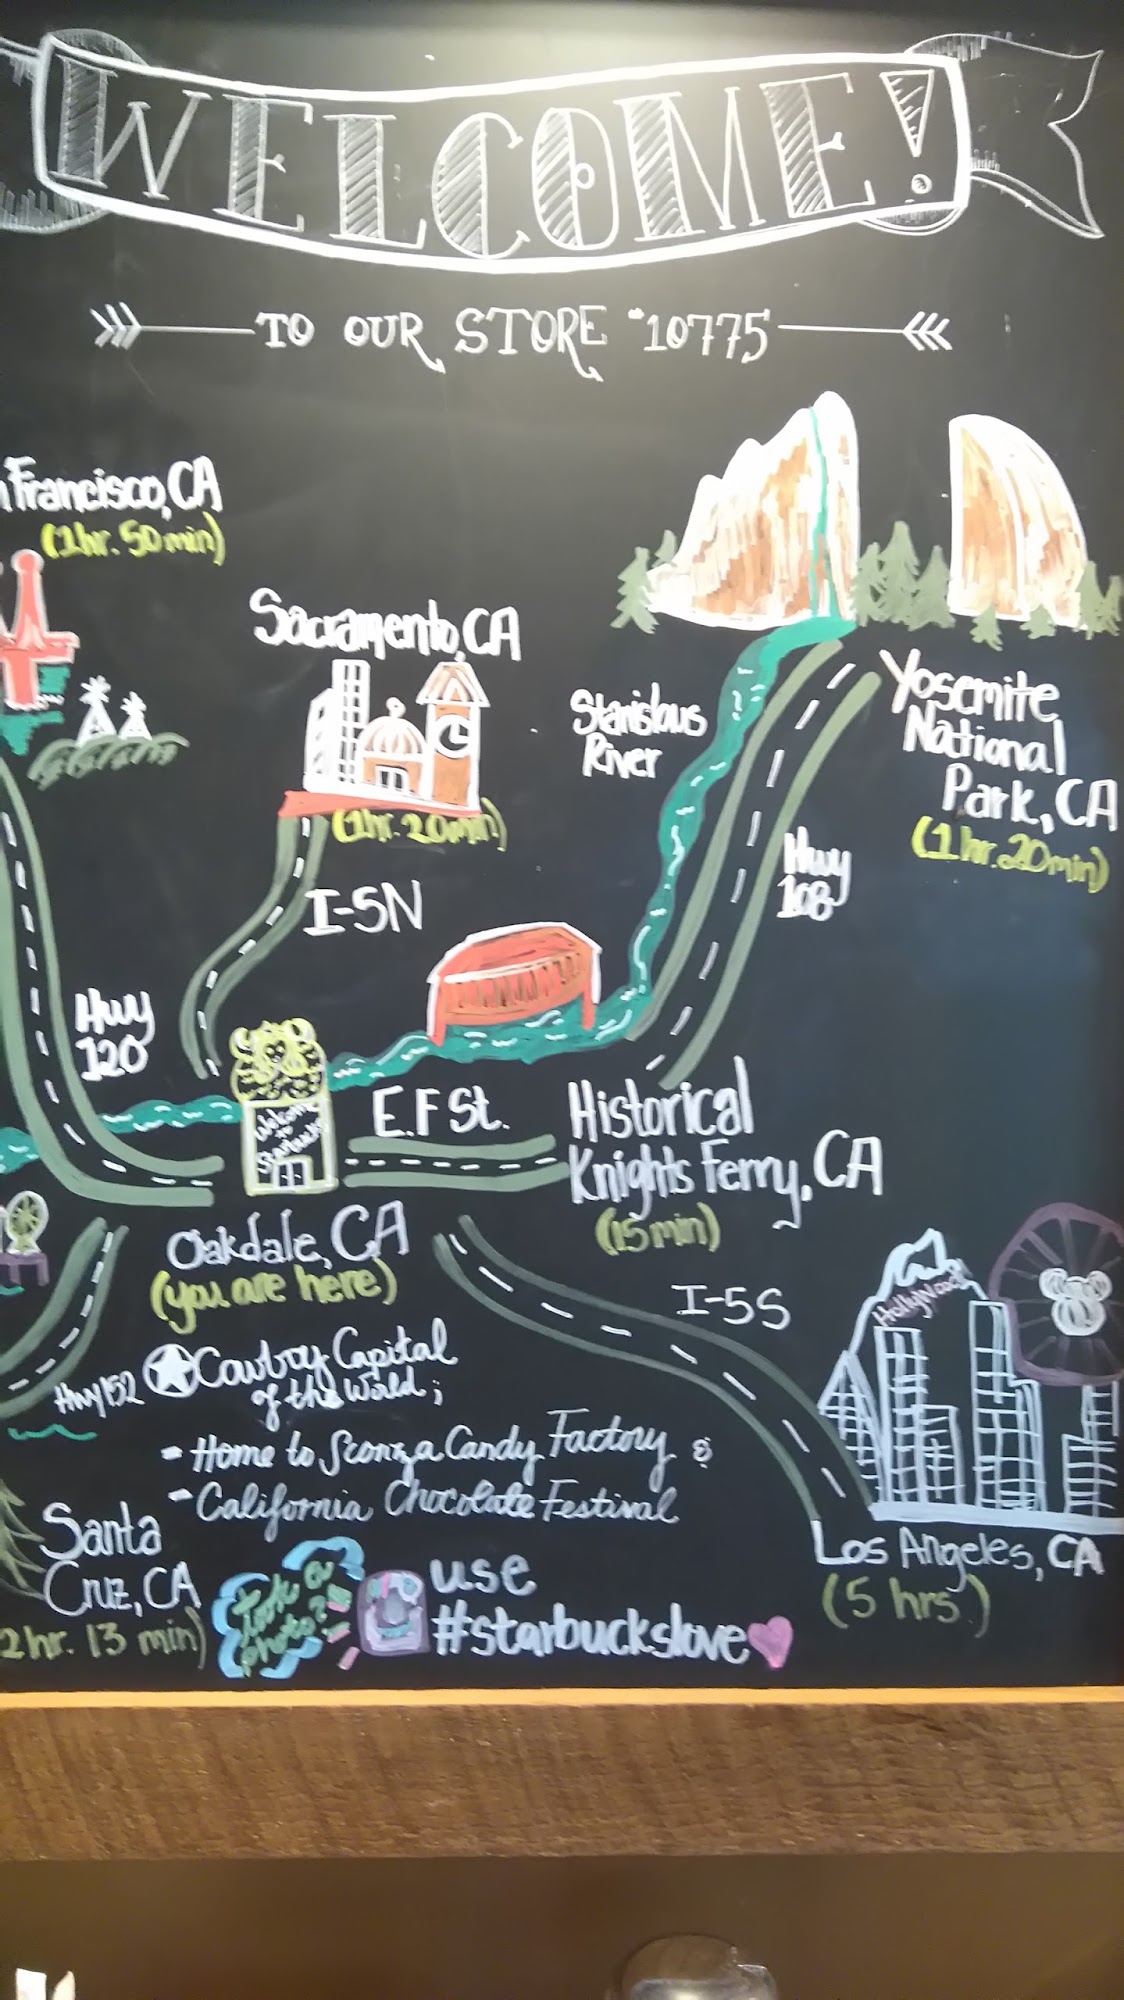 WELCOME!
TO OUR STORE #10775
n Francisco, CA
(1hr. 50min)
Sacramento, CA
(1hr. 20min)
I-5N
Stanislaus
River
Yosemite
National
Park, CA
(1hr. 20min)
Hwy
108
Hwy
120
Welcome
to
Starbucks
E. F St.
Historical
Knights Ferry, CA
(15 min)
Oakdale, CA
(you are here)
I-5S
Hollywood
Hwy 152
Cowboy Capital
of the World;
- Home to Sconza Candy Factory &
- California Chocolate Festival
Santa
Cruz, CA
2hr. 13 min)
Took a
photo?
use
#starbuckslove
Los Angeles, CA
(5 hrs.)